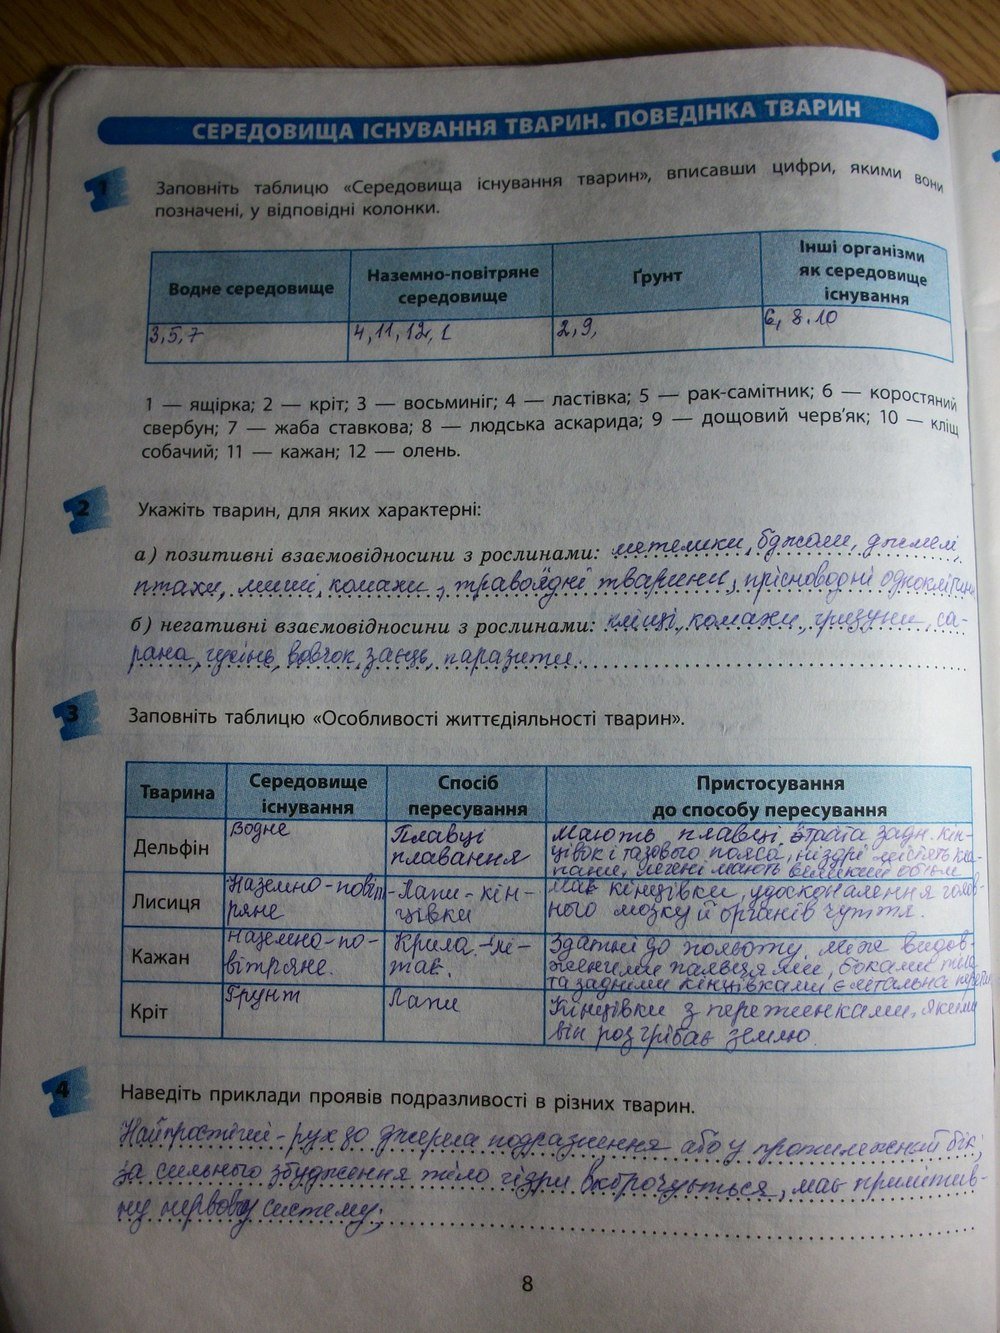 СЕРЕДОВИЩА ІСНУВАННЯ ТВАРИН. ПОВЕДІНКА ТВАРИН
1
Заповніть таблицю «Середовища існування тварин», вписавши цифри, якими вони
позначені, у відповідні колонки.
Водне середовище
Наземно-повітряне
середовище
Ґрунт
Інші організми
як середовище
існування
3,5,7
4,11,12,1
2,9,
6, 8.10
1 — ящірка; 2 — кріт; 3 — восьминіг; 4 — ластівка; 5 — рак-самітник; 6 — коростяний
свербун; 7 — жаба ставкова; 8 — людська аскарида; 9 — дощовий черв'як; 10 — кліщ
собачий; 11 — кажан; 12 — олень.
2
Укажіть тварин, для яких характерні:
а) позитивні взаємовідносини з рослинами: метелики, бджоли, джмелі,
птахи, миші, комахи, травоїдні тварини, прісноводні
б) негативні взаємовідносини з рослинами: кліщі, комахи, гризуни, са-
рана, гусінь, вовчок, заєць, паразити.
3
Заповніть таблицю «Особливості життєдіяльності тварин».
Тварина
Середовище
існування
Спосіб
пересування
Пристосування
до способу пересування
Дельфін
Водне
Плавці
плавання
Мають плавці, втрата задн. кін-
цівок і тазового пояса, ніздрі містять кла-
пани, легені мають великий об'єм
Лисиця
Наземно-повіт-
ряне
Лапи-кін-
цівки
Має кінцівки, удосконалення голов-
ного мозку й органів чуття.
Кажан
Наземно-по-
вітряне.
Крила-лі-
тає.
Здатні до польоту, між видов-
женими пальцями, боками тіла
та задніми кінцівками є літальна
Кріт
Ґрунт
Лапи
Кінцівки з перетинками, якими
він розгрібає землю.
4
Наведіть приклади проявів подразливості в різних тварин.
Найпростіші - рух до джерела подразнення або у протилежний бік,
за сильного збудження тіло гідри вкорочується, має примітив-
ну нервову систему;
8